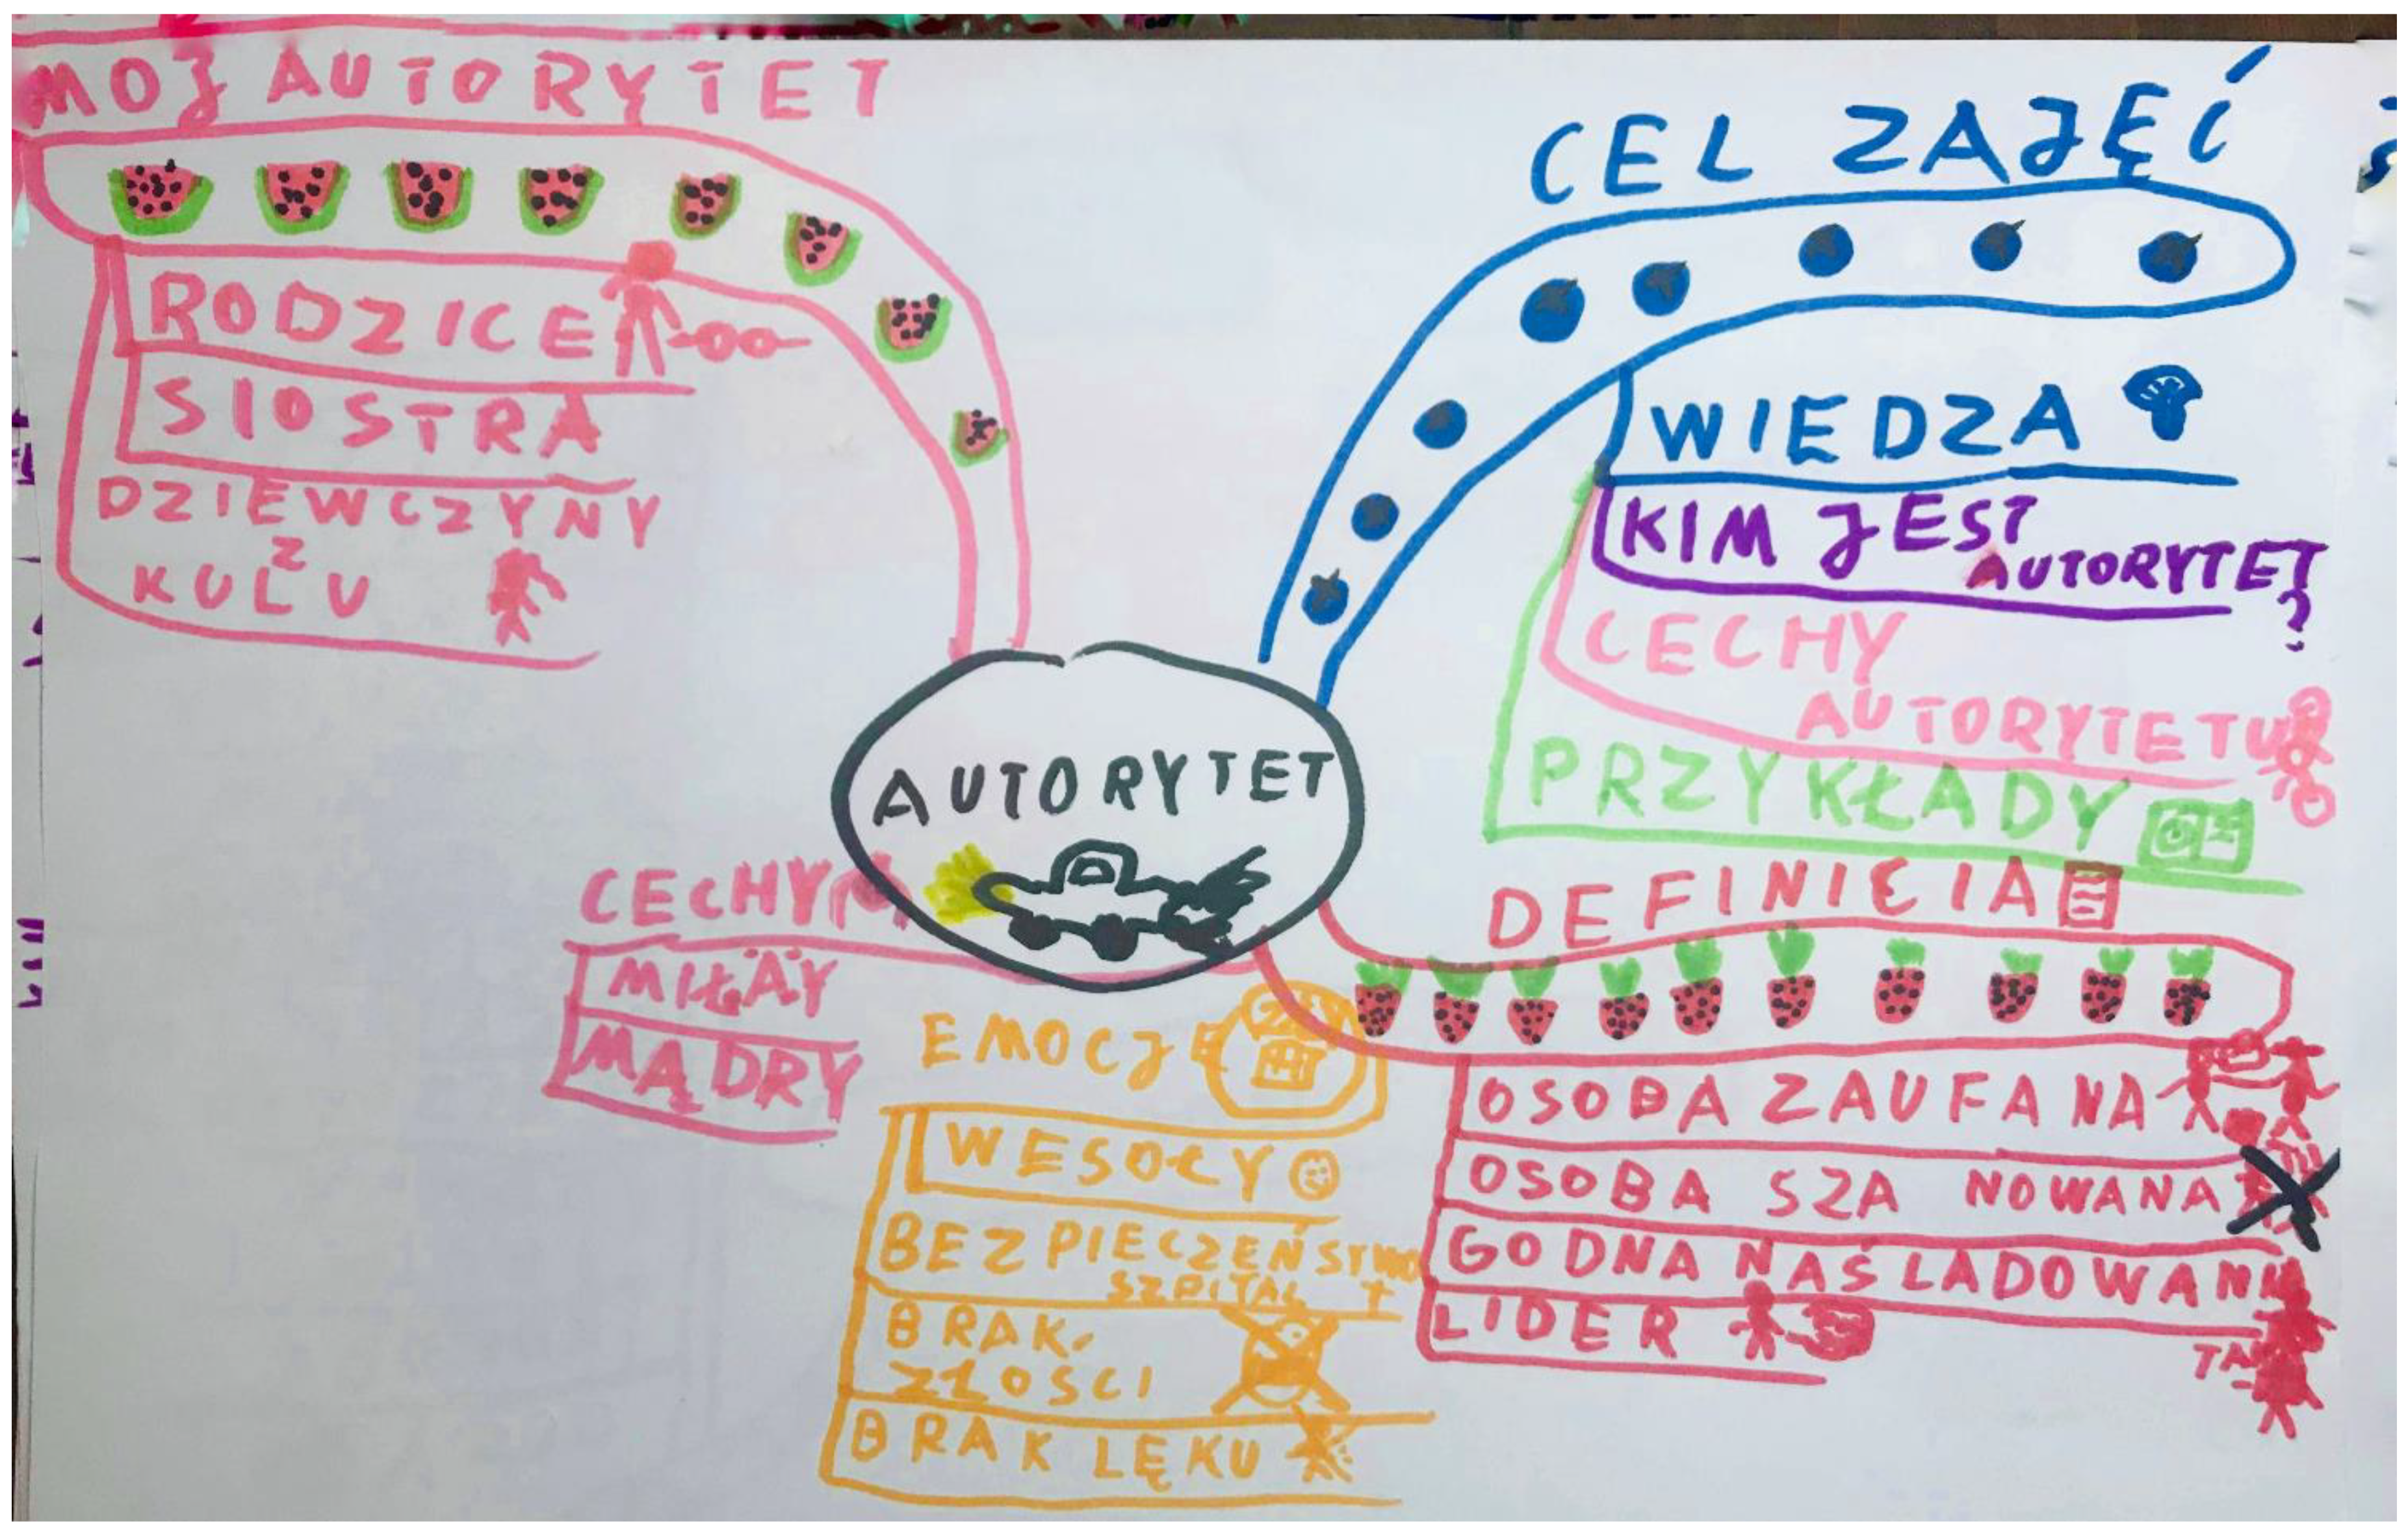 MOJ AUTORYTET
RODZICE
SIOSTRA
DZIEWCZYNY
Z
KULU
CEL ZAJĘĆ
WIEDZA
KIM JEST
AUTORYTET
?
CECHY
AUTORYTETU
PRZYKŁADY
AUTORYTET
DEFINICIA
OSOBA ZAUFANA
OSOBA SZA NOWANA
GODNA NAŚLADOWANIA
LIDER
CECHY
MIŁY
MĄDRY
EMOCJE
WESOŁY
BEZPIECZEŃSTWO
SZPITAL
BRAK
ZŁOSCI
BRAK LĘKU